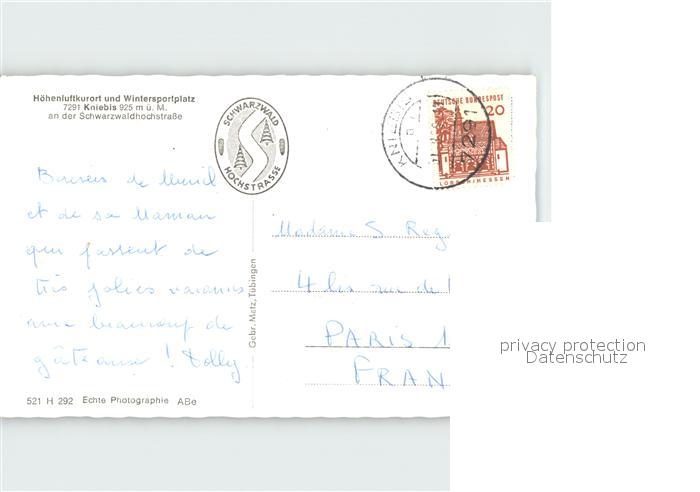 Höhenluftkurort und Wintersportplatz
7291 Kniebis 925 m ü. M.
an der Schwarzwaldhochstraße
SCHWARZWALD
HOCHSTRASSE
KNIEBIS
7291
DEUTSCHE BUNDESPOST
20
LORSCH/HESSEN
Baisers de
et de sa Maman
qui passent de
très jolies vacances
avec beaucoup de
gâteaux ! Dolly
Madame S.
4 bis rue de
PARIS 1
FRAN
Gebr. Metz, Tübingen
521 H 292 Echte Photographie ABe
privacy protection
Datenschutz